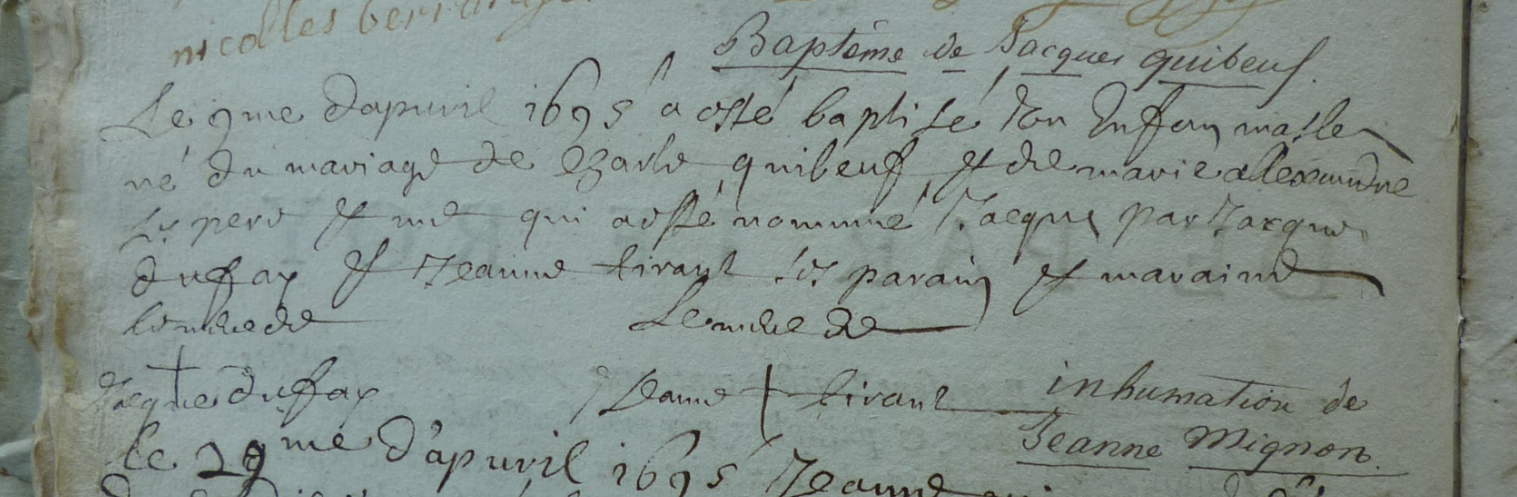 nicolles
Baptême de Jacques quibeuf.
Le 9me dapuril 1695 a esté baptisé Von Enffan masle
né du mariage de Charle quibeuf et de marie allexandre
ses pere et me qui a esté nommé Jacque par Jacque
duffay et Jeanne tirant ses parain et maraine
La merc de Le merc de
Jacque duffay Jeanne tirant
inhumation de
Jeanne Mignon.
le 29me d'apuril 1695 Jeanne